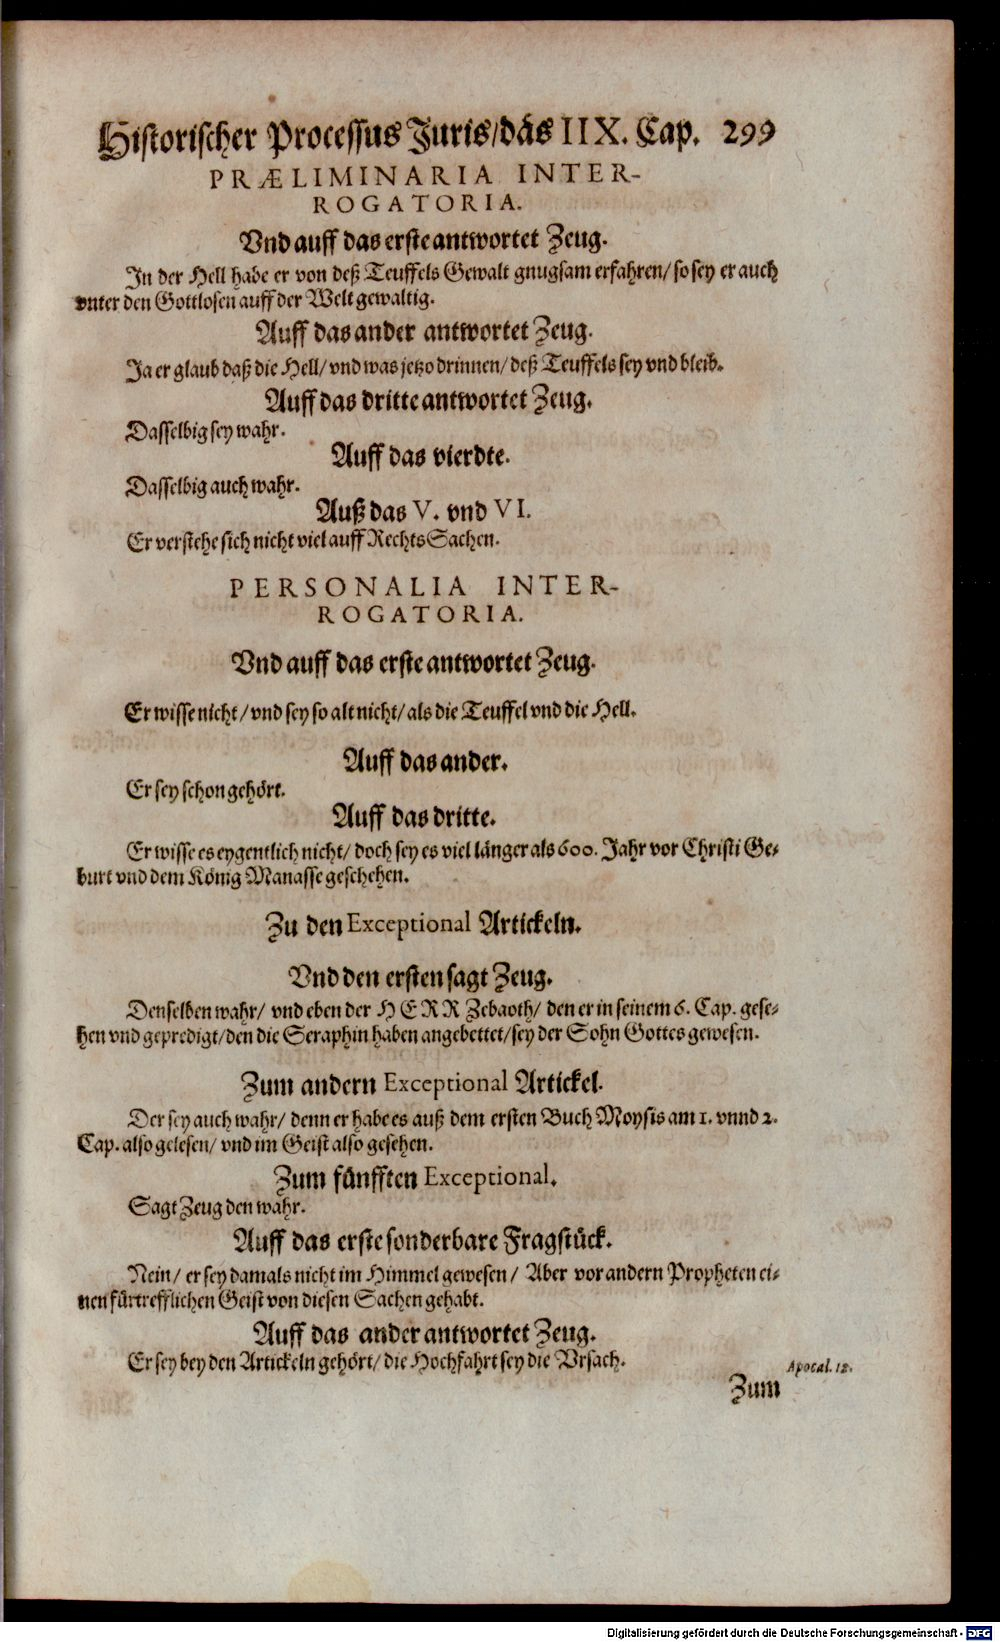 Historischer Processus Juris/das IIX. Cap. 299
PRÆLIMINARIA INTER-
ROGATORIA.
Vnd auff das erste antwortet Zeug.
In der Hell habe er von deß Teuffels Gewalt gnugsam erfahren/ so sey er auch
vnter den Gottlosen auff der Welt gewaltig.
Auff das ander antwortet Zeug.
Ja er glaub daß die Hell/ vnd was jetzo drinnen/ deß Teuffels sey vnd bleib.
Auff das dritte antwortet Zeug.
Dasselbig sey wahr.
Auff das vierdte.
Dasselbig auch wahr.
Auß das V. vnd VI.
Er verstehe sich nicht viel auff Rechts Sachen.
PERSONALIA INTER-
ROGATORIA.
Vnd auff das erste antwortet Zeug.
Er wisse nicht/ vnd sey so alt nicht/ als die Teuffel vnd die Hell.
Auff das ander.
Er sey schon gehört.
Auff das dritte.
Er wisse es eygentlich nicht/ doch sey es viel länger als 600. Jahr vor Christi Ge-
burt vnd dem König Manasse geschehen.
Zu den Exceptional Artickeln.
Vnd den ersten sagt Zeug.
Denselben wahr/ vnd eben der HERR Zebaoth/ den er in seinem 6. Cap. gese-
hen vnd gepredigt/ den die Seraphin haben angebettet/ sey der Sohn Gottes gewesen.
Zum andern Exceptional Artickel.
Der sey auch wahr/ denn er habe es auß dem ersten Buch Moysis am 1. vnnd 2.
Cap. also gelesen/ vnd im Geist also gesehen.
Zum fünfften Exceptional.
Sagt Zeug den wahr.
Auff das erste sonderbare Fragstück.
Nein/ er sey damals nicht im Himmel gewesen/ Aber vor andern Propheten ei-
nen fürtrefflichen Geist von diesen Sachen gehabt.
Auff das ander antwortet Zeug.
Er sey bey den Artickeln gehört/ die Hochfahrt sey die Vrsach.
Apocal. 12.
Zum
Digitalisierung gefördert durch die Deutsche Forschungsgemeinschaft - DFG